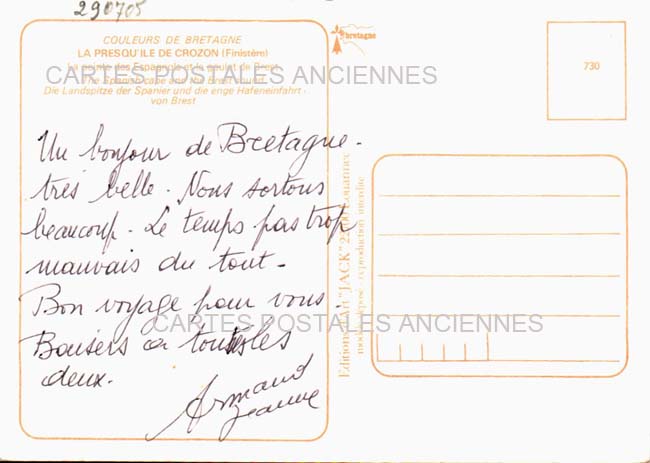 290705
COULEURS DE BRETAGNE
LA PRESQU'ILE DE CROZON (Finistère)
La pointe des Espagnols et le goulet de Brest
CARTES POSTALES ANCIENNES
The Spanish cape and the Brest
Die Landspitze der Spanier und die enge Hafeneinfahrt
von Brest
bretagne
730
Un bonjour de Bretagne.
très belle. Nous sortons
beaucoup. Le temps pas trop
mauvais du tout.
Bon voyage pour vous.
CARTES POSTALES ANCIENNES
Baisers à toutes les
deux.
Armand
Jeanne
Editions d'Art "JACK" Louannec
modèle déposé reproduction interdite